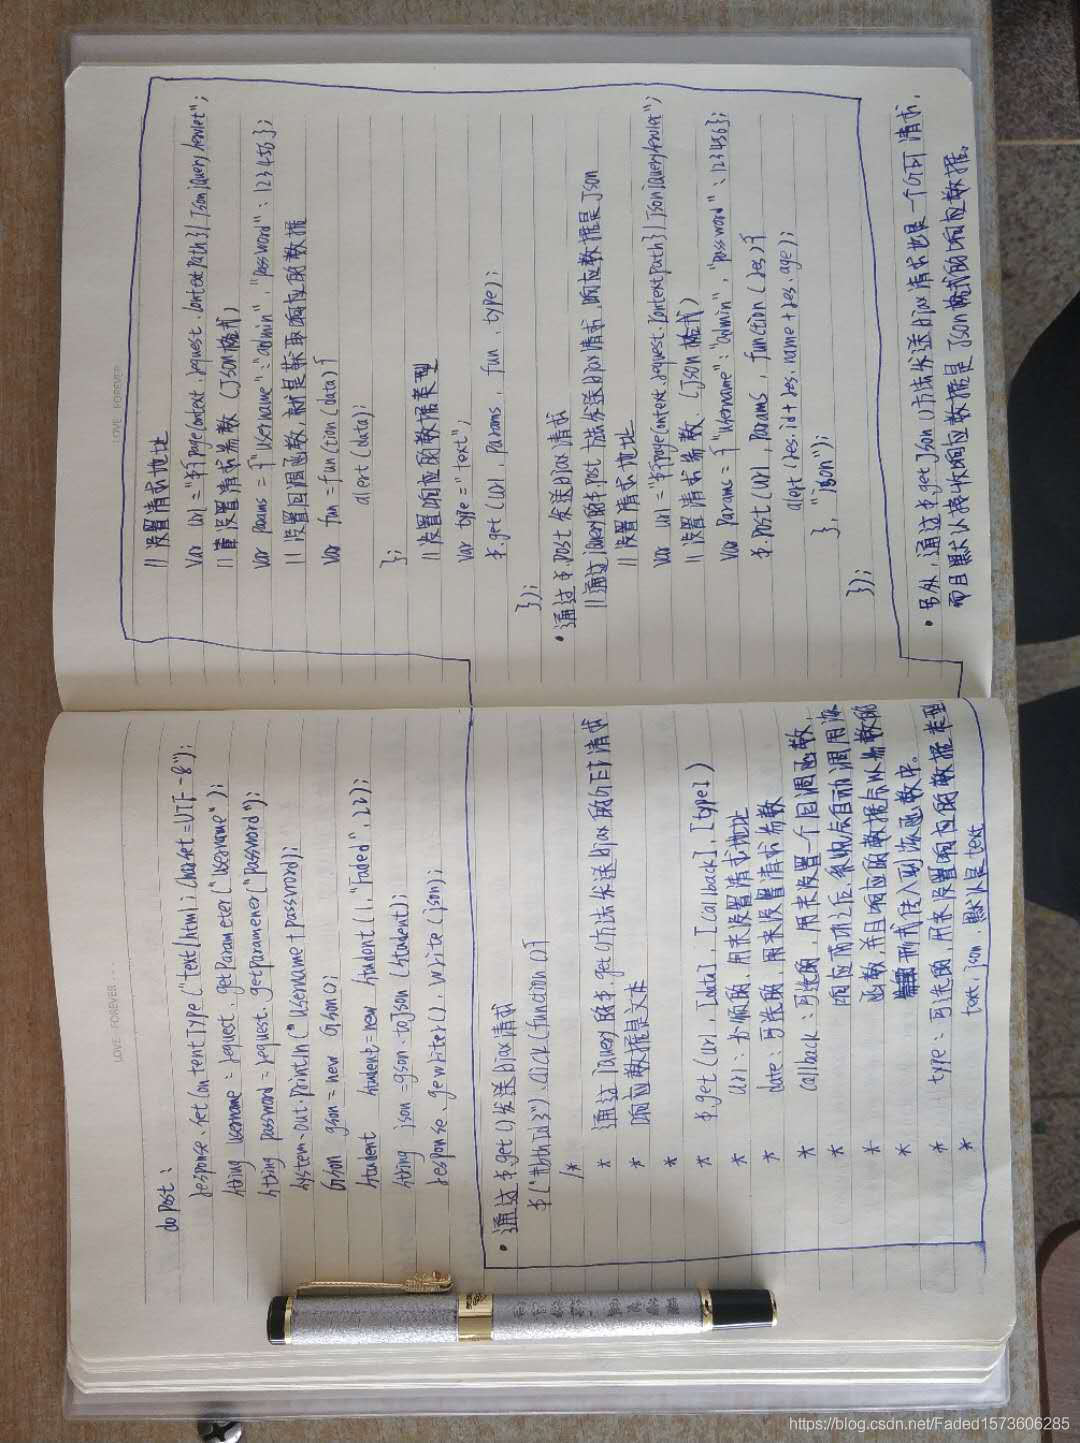 LOVE · FOREVER · · ·
do Post :
response.setContentType("text/html; charset=UTF-8");
String username = request.getParameter("username");
String password = request.getParamener("password");
System.out.println("Username + password);
Gson gson = new Gson();
Student student = new Student(1,"Faded",22);
String json = gson.toJson(student);
response.gewriter().write(json);
• 通过$.get()发送ajax请求
$("#btnId3").click(function(){
/*
* 通过jquery的$.get()方法发送ajax的GET请求
* 响应数据是文本
*
* $.get(url,[data],[callback],[type])
* url:必须的,用来设置请求地址
* date:可选的,用来设置请求参数
* callback:可选的,用来设置一个回调函数,
* 响应成功之后,系统后自动调用该
* 函数,并且响应的数据会以参数的
* 形式传入到该函数中。
* type:可选的,用来设置响应的数据类型
* text,json,默认是text
LOVE · FOREVER · · ·
// 设置请求地址
var url = "${pageContext.request.contextPath}/JsonjQueryServlet";
// 设置请求参数 (Json格式)
var params = {"username":"admin","password":123456};
// 设置回调函数,就是获取响应的数据
var fun = funcion(data){
alert(data);
};
// 设置响应的数据类型
var type="text";
$.get(url,params,fun,type);
});
• 通过$.post发送ajax请求
// 通过jquery的$.post方法发送ajax请求,响应数据是Json
// 设置请求地址
var url="${pageContext.request.contextPath}/JsonjQueryServlet";
// 设置请求参数、(Json格式)
var params = {"username":"admin","password":123456};
$.post(url,params,function(res){
alert(res.id+res.name+res.age);
},"json");
});
• 另外,通过$.getJson()方法发送ajax请求也是一个GET请求,
而且默认接收响应数据是Json格式的响应数据。
https://blog.csdn.net/Faded1573606285